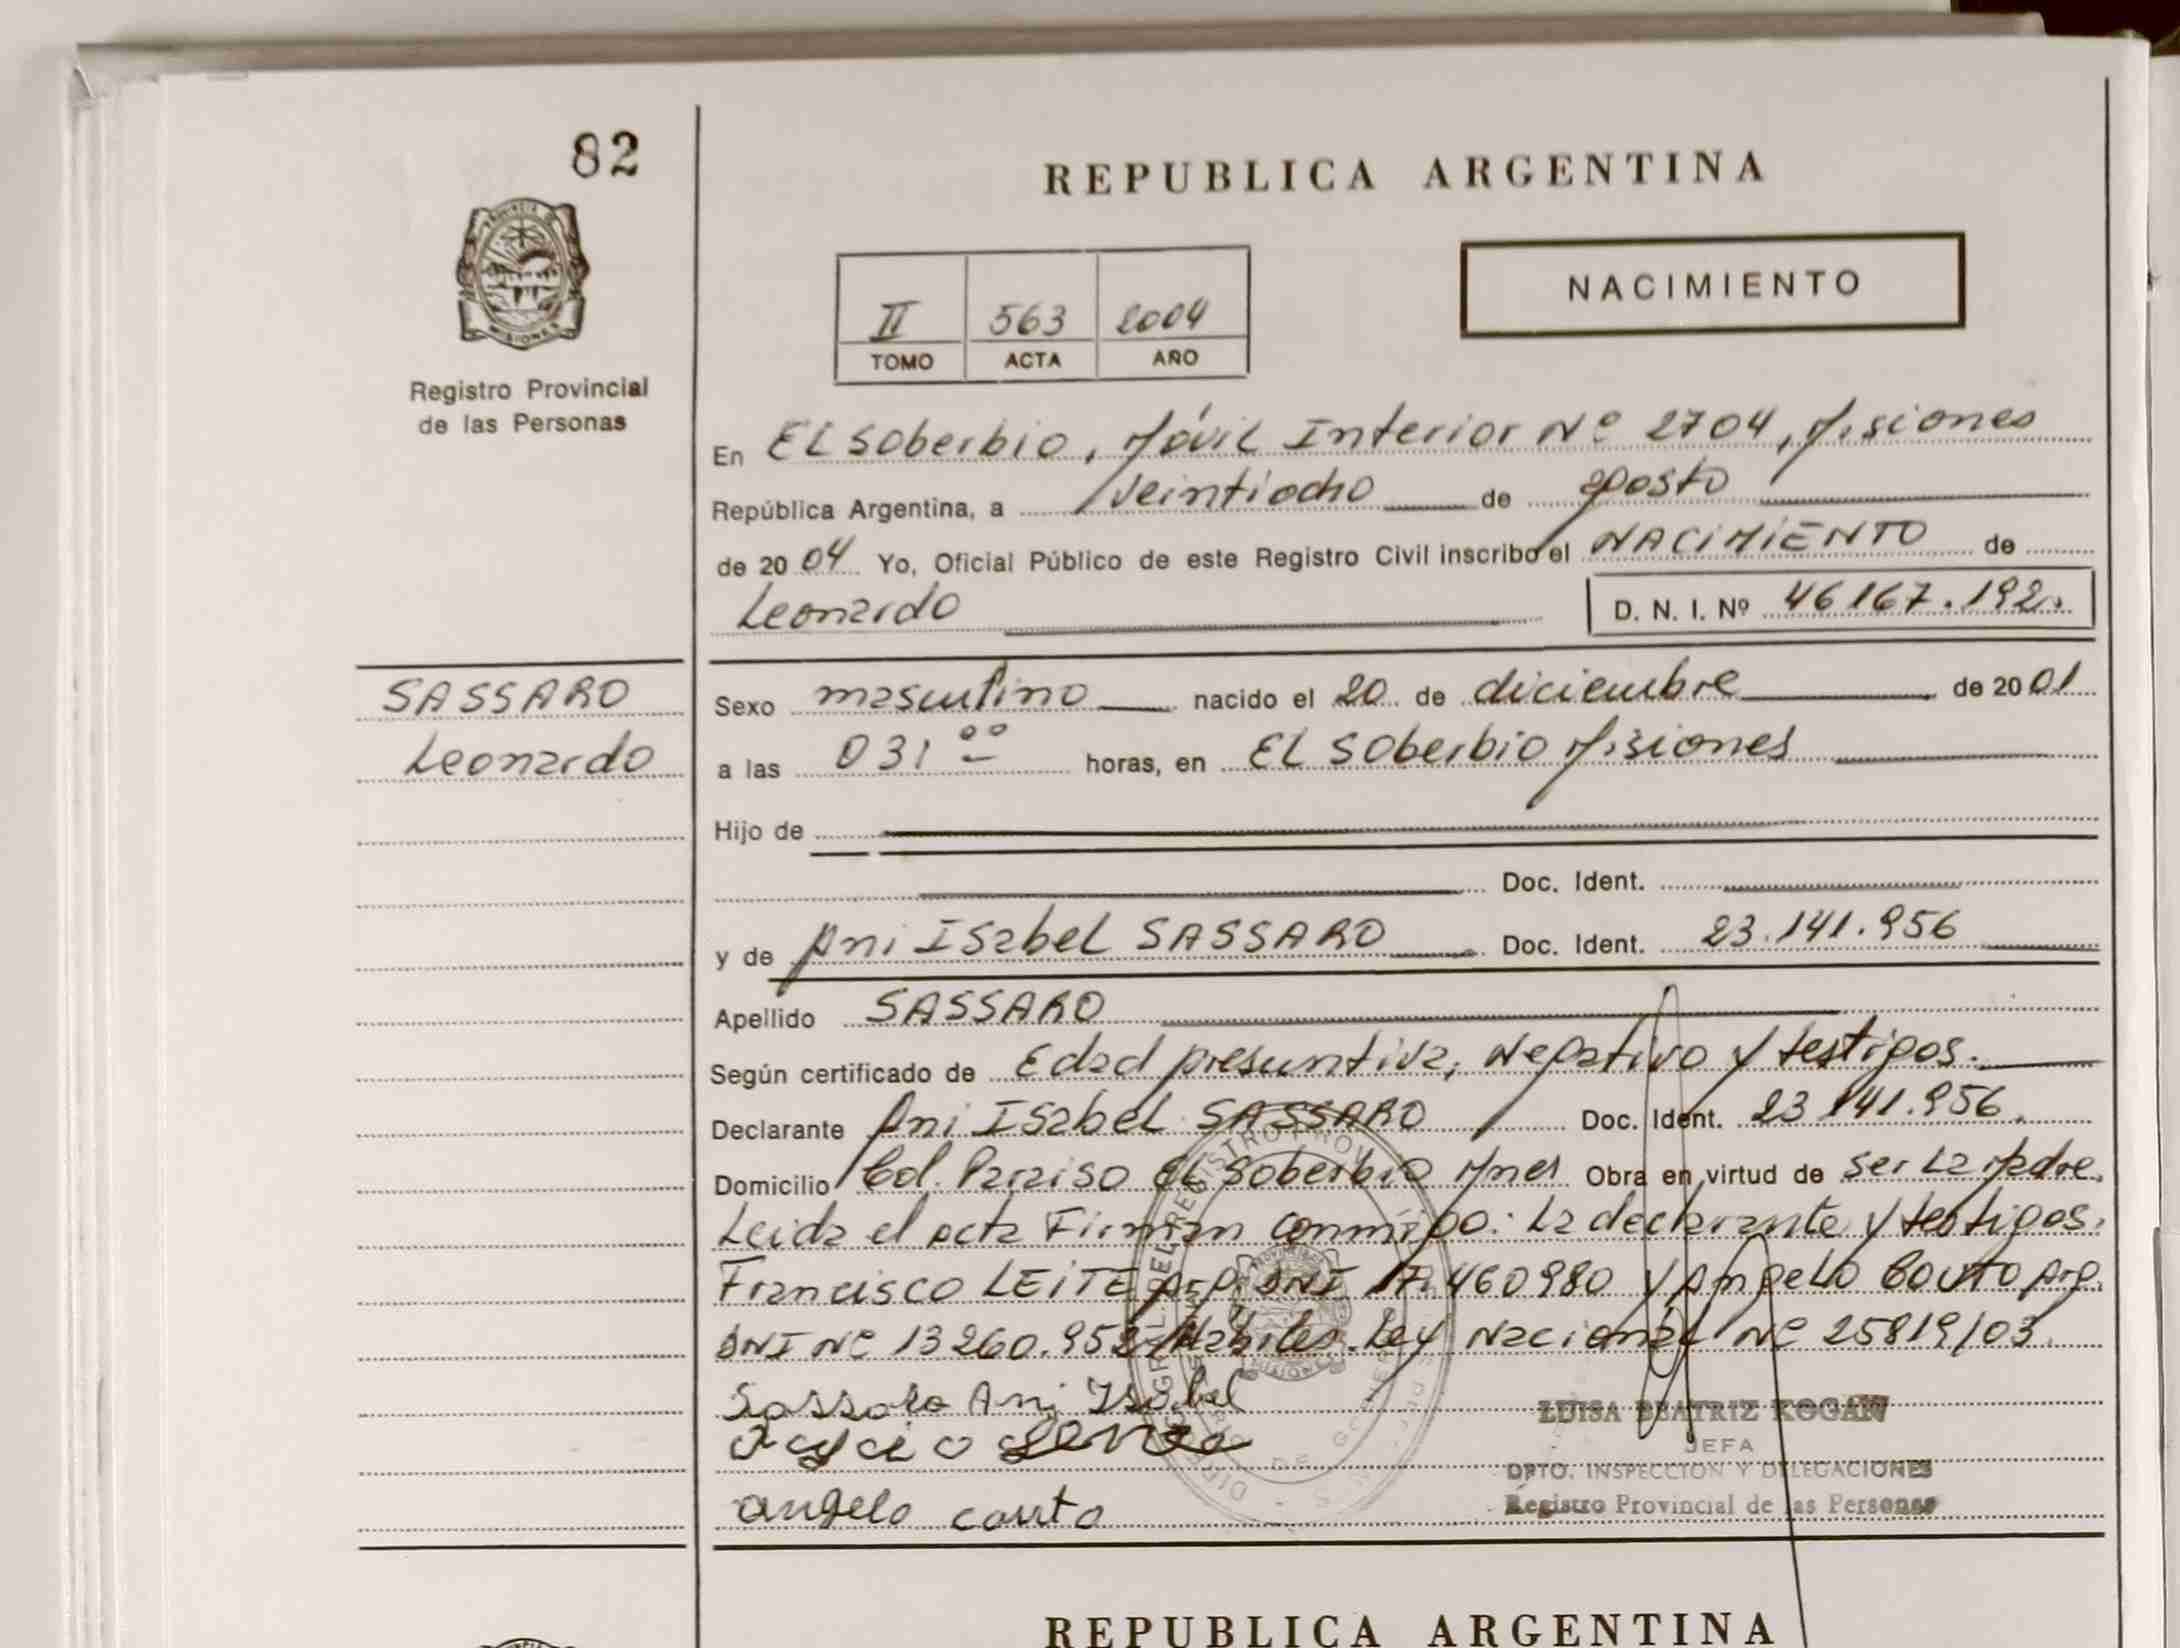 82
REPUBLICA ARGENTINA
NACIMIENTO
II 563 2004
TOMO ACTA AÑO
Registro Provincial
de las Personas
En EL Soberbio, Móvil Interior Nº 2704, Misiones
República Argentina, a Veintiocho de agosto
de 2004 Yo, Oficial Público de este Registro Civil inscribo el NACIMIENTO de
Leonardo D. N. I. Nº 46167.192.
SASSARO
Leonardo
Sexo masculino nacido el 20 de diciembre de 2001
a las 031 00 horas, en EL Soberbio Misiones
Hijo de
Doc. Ident.
y de Ani Isabel SASSARO Doc. Ident. 23.141.956
Apellido SASSARO
Según certificado de Edad presuntiva, Negativo y testigos.
Declarante Ani Isabel SASSARO Doc. Ident. 23 141.956.
Domicilio Col. Paraiso EL Soberbio Mnes Obra en virtud de ser La Madre.
Leida el acta Firman conmigo: La declarante y testigos.
Francisco LEITE Arg. DNI 17.460980 y Angelo Couto Arg.
DNI Nº 13260.952 Habiles. Ley Nacional Nº 25819/03.
Sassaro Ani Isabel
angelo couto
LUISA BEATRIZ KOGAN
JEFA
DPTO. INSPECCION Y DELEGACIONES
Registro Provincial de las Personas
REPUBLICA ARGENTINA